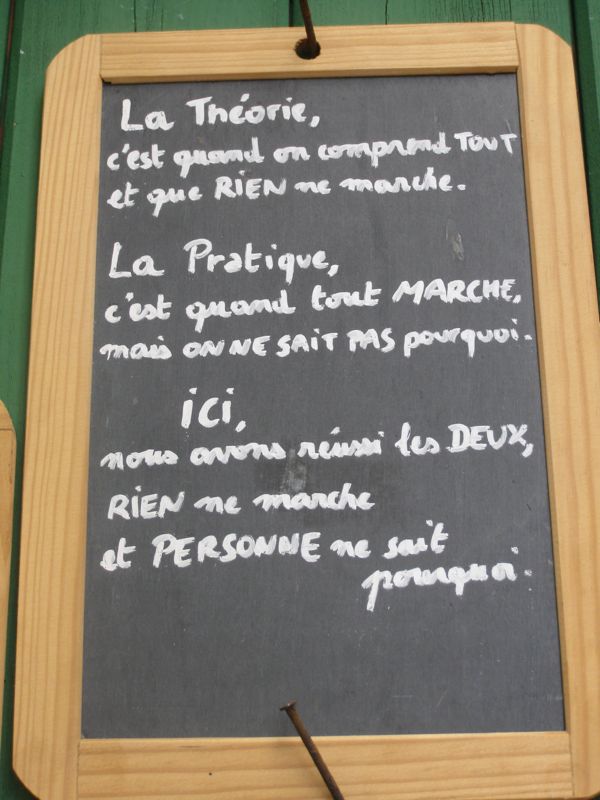 La Théorie,
c'est quand on comprend TOUT
et que RIEN ne marche.
La Pratique,
c'est quand tout MARCHE,
mais ON NE SAIT PAS pourquoi.
ici,
nous avons réussi les DEUX,
RIEN ne marche
et PERSONNE ne sait
pourquoi.